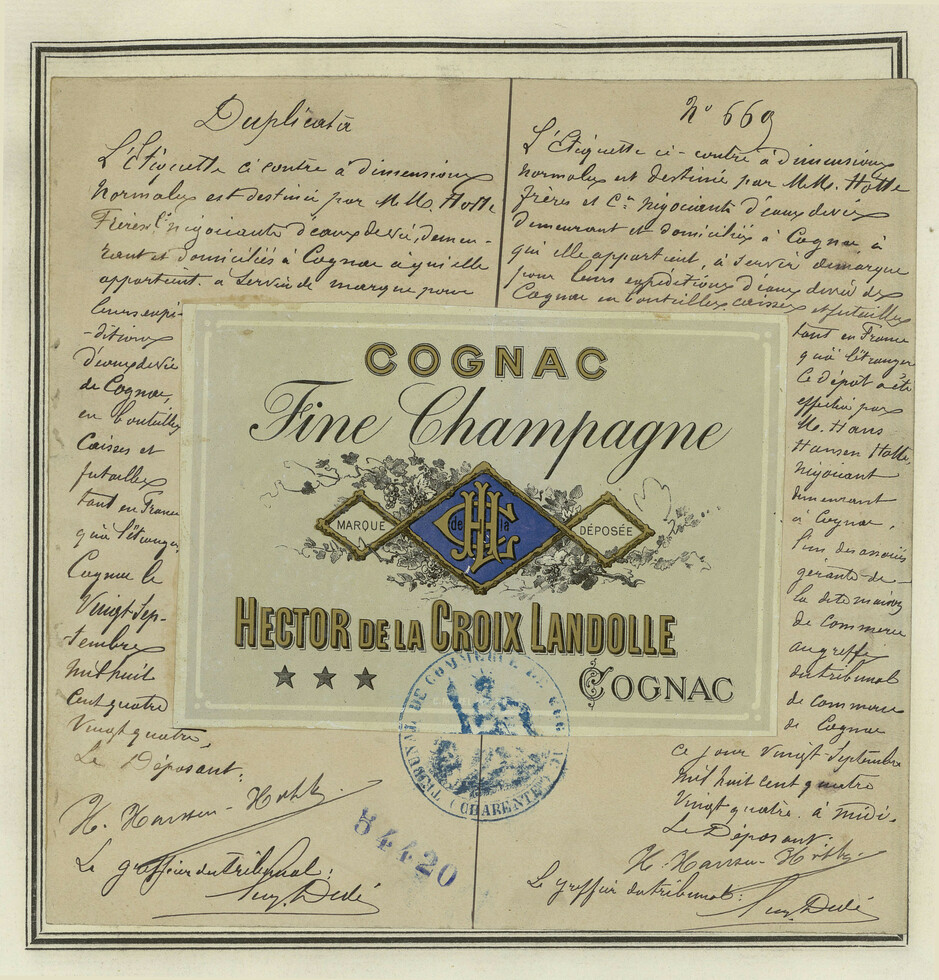 Duplicata
L'Etiquette ci contre à dimensions
normales est destinée par M.M. Hotte
Frères & Cie négociants d'eaux de vie, demeu-
rant et domiciliés à Cognac à qui elle
appartient à servir de marque pour
leurs expé-
-ditions
d'eaux de vie
de Cognac,
en bouteilles
caisses et
futailles
tant en France
qu'à l'étranger
Cognac le
Vingt Sep-
-tembre
mil huit
cent quatre
Vingt quatre,
Le Déposant:
Le greffier du tribunal:
N° 669
L'Etiquette ci-contre à dimensions
normales est destinée par M.M. Hotte
frères et Cie négociants d'eaux de vie
demeurant et domiciliés à Cognac à
qui elle appartient, à servir de marque
pour leurs expéditions d'eaux de vie de
Cognac en bouteilles, caisses et futailles
tant en France
qu'à l'étranger
Ce dépôt a été
effectué par
M. Hans
Hansen Hotte,
négociant
demeurant
à Cognac,
l'un des associés
gérants de
la dite maison
de commerce
au greffe
du tribunal
de commerce
de Cognac
ce jour vingt-Septembre
mil huit cent quatre
Vingt quatre à midi.
Le Déposant:
Le greffier du tribunal:
COGNAC
Fine Champagne
MARQUE
de la
DÉPOSÉE
HECTOR DE LA CROIX LANDOLLE
★ ★ ★
COGNAC
TRIBUNAL DE COMMERCE
(CHARENTE)
54420